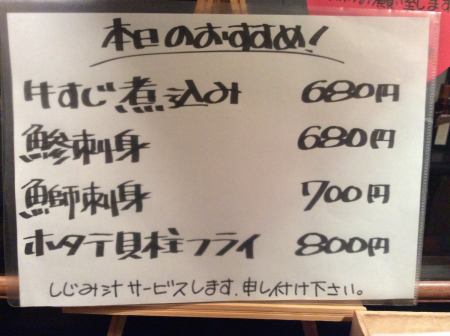 本日のおすすめ!
牛すじ煮込み 680円
鰺刺身 680円
鰤刺身 700円
ホタテ貝柱フライ 800円
しじみ汁サービスします、申し付け下さい。